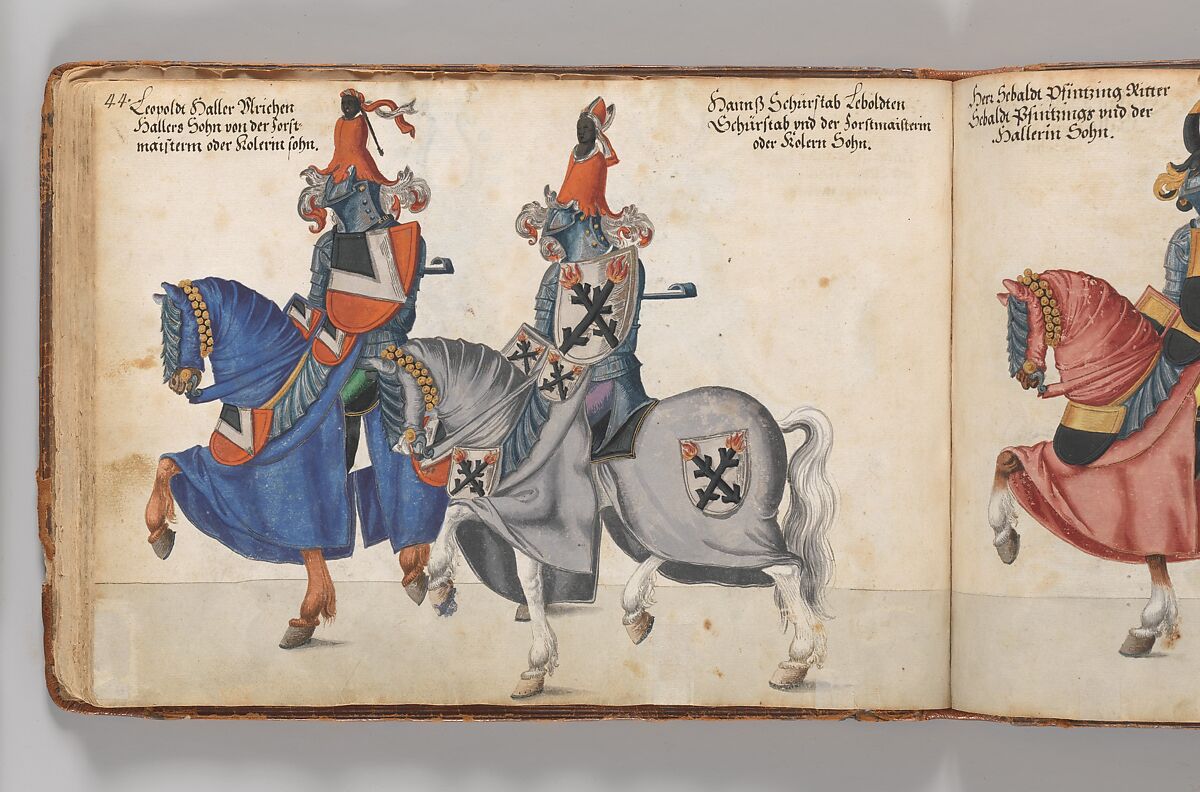 44.
Leopoldt Haller Vlrichen
Hallers Sohn von der Forst-
maisterin oder Kolerin sohn.
Hannß Schürstab Leboldten
Schürstab vnd der Forstmaisterin
oder Kolern Sohn.
Herr Sebaldt Pfintzing Ritter
Sebaldt Pfintzings vnd der
Hallerin Sohn.